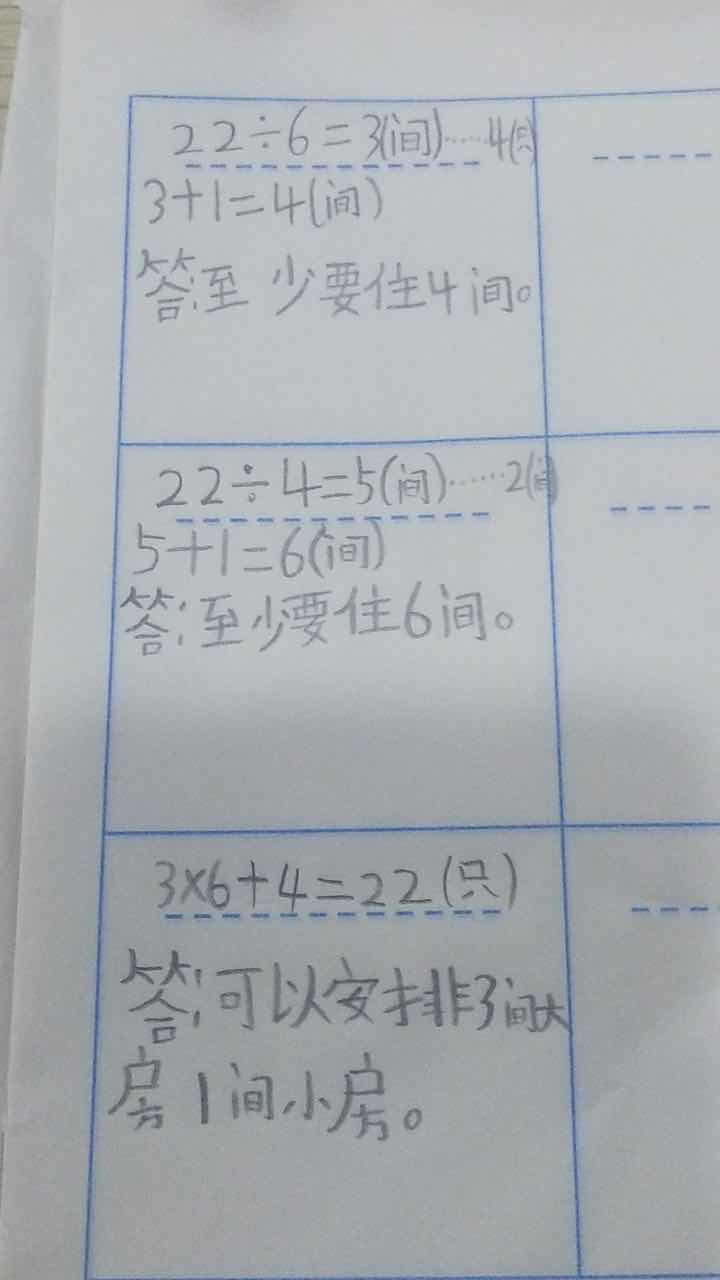 22÷6=3(间)……4(只)
3+1=4(间)
答:至少要住4间。
22÷4=5(间)……2(间)
5+1=6(间)
答:至少要住6间。
3×6+4=22(只)
答:可以安排3间大
房1间小房。